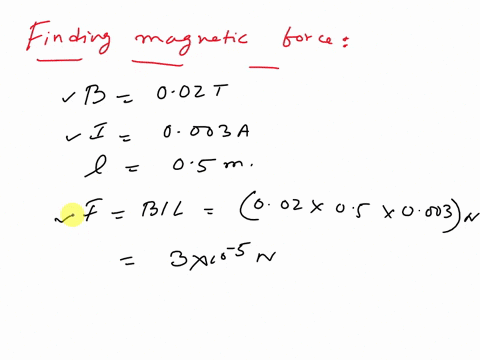 Finding magnetic force:
✓ B = 0.02 T
✓ I = 0.003 A
l = 0.5 m.
✓ F = BIL = (0.02 × 0.5 × 0.003) N
= 3 × 10⁻⁵ N